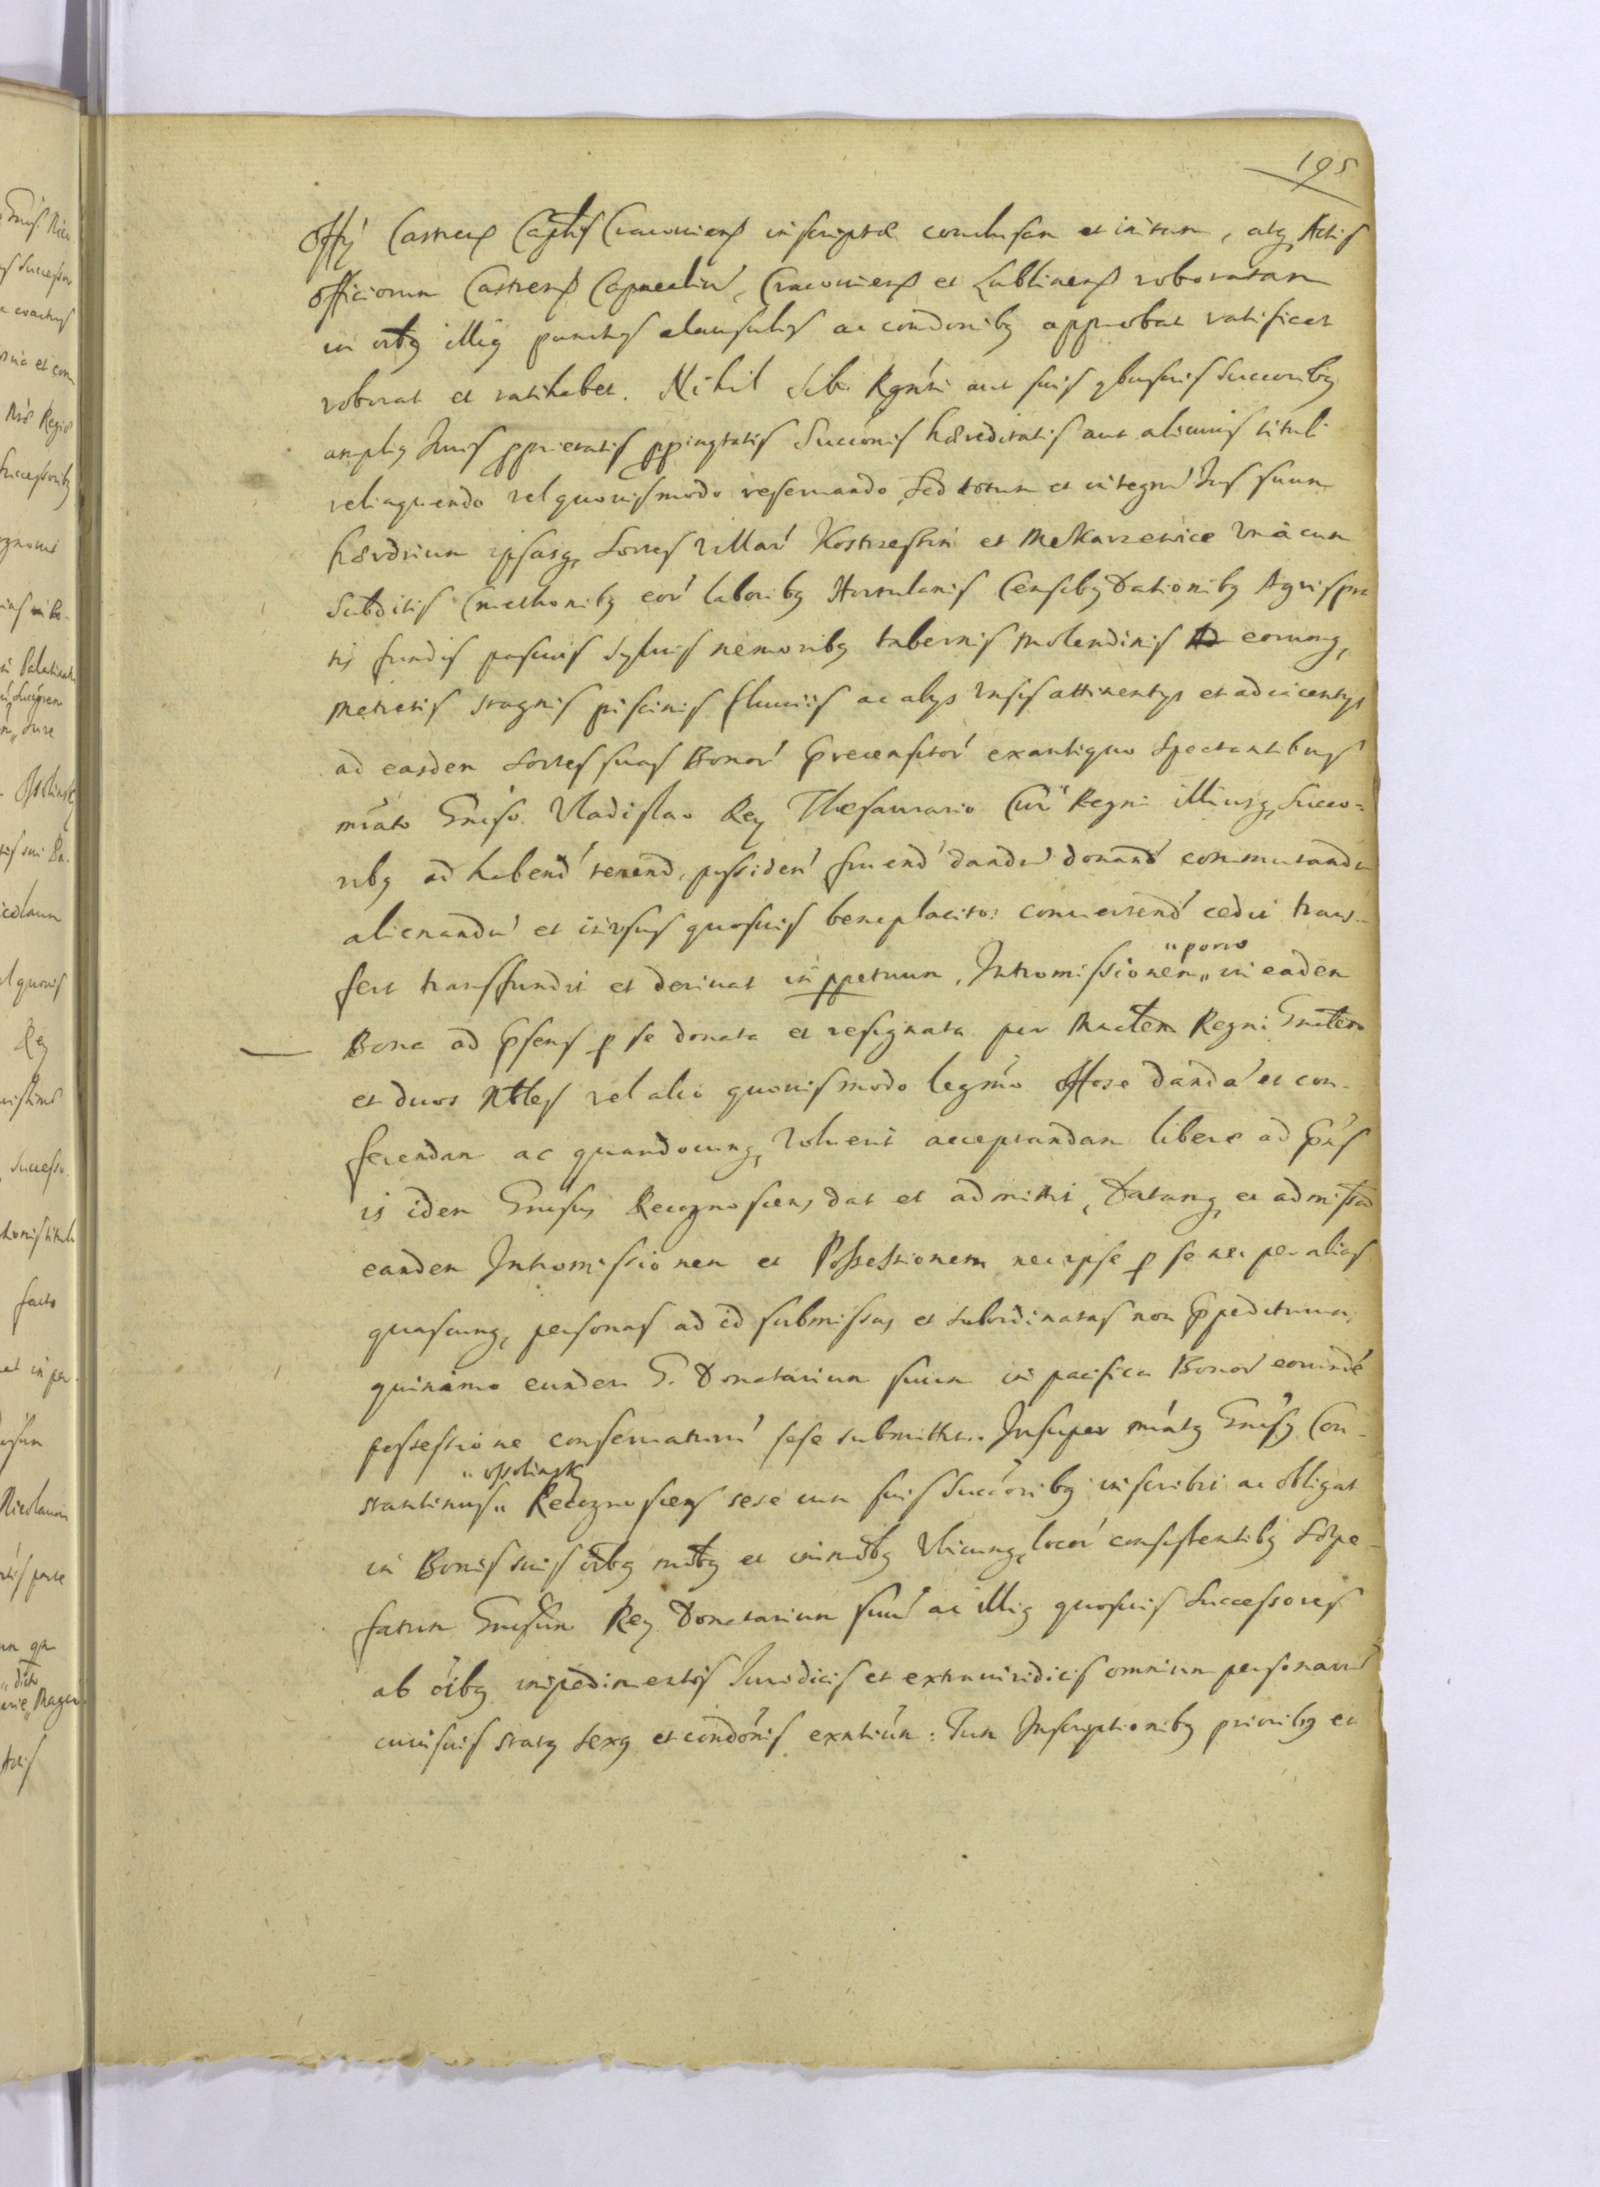 195
Offÿ Castreñ Capͭlis Cracovieñ inscriptæ conclusam et initam, atq₃ Actis
officiorum Castreñ Capnealiu͂, Cracovieñ et Lublineñ roboratam
in oi͂bꝫ illiꝫ punctis clausulis ac condo͂nibꝫ approbat ratificat
roborat et ratihabet. Nihil sibi Rgn͂ti aut suis qbusvis Succo͂ribꝫ
ampliꝫ Juris ꝓprietatis ꝓpinqtatis Succio͂nis hæreditatis aut alicuius tituli
relinquendo vel quovismodo reservando, Sed totum et integru͂ Jus suum
hærd͂rium ipsasq₃ Sortes Villar͂ Kostrzeszin et Mekarzewice Vnà cum
Subditis Cmethonibꝫ eor͂ laboribꝫ Hortulanis Censibꝫ Dationibꝫ Agris pra
tis fundis pascuis Sylvis nemoribꝫ tabernis molendinis eorumq₃
metretis stagnis piscinis fluviis ac alys vnsis attinentys et adiacentys
ad easdem Sortes suas Bonor͂ Precensitor͂ exantiquo Spectantibus
mra͂to Gn͂so Vladislao Rey Thesaurario Cur͂ Regni illiusq₃ Succo=
ribꝫ ad habend͂ tenend, possiden͂ fruend͂ dandu͂ donand͂ commutandu
alienandu͂ et in vsus quosvis beneplacitos convertend͂ cedit trans-
fert transfundit et derivat in ꝑpetuum, Intromissionem „ in eadem
„ porro
Bona ad Psens ꝑ se donata et resignata per Mnͭtem Regni Gn͂alem
et duos Nbles vel alio quovismodo legm͂o Offose danda͂ et con-
ferendam ac quandocunq₃ Voluerit acceptandam libere ad Pn͂s
is idem Gn͂sus Recognoscens dat et admittit, Datamq₃ et admissa͂
eandem Intromissionem et Possessionem nec ipse ꝑ se nec per alias
quascunq₃ personas ad id submissas et subordinatas non Ppediturum,
quinimo eundem G. Donatarium suum in pacifica Bonor͂ eorunde͂
possessione conservaturu͂ sese submittit. Insuper mra͂tꝫ Gn͂sꝫ Con-
„ ossolinsky
stantinus „ Recognoscens sese cum suis Succo͂ribꝫ inscribit ac obligat
in Bonis suis oi͂bꝫ mo͂bꝫ et immo͂bꝫ Vbicunq₃ locor͂ consistentibꝫ Sæpe-
fatum Gn͂sum Rey Donatarium suu͂ ac illiꝫ quosvis Successores
ab oi͂bꝫ impedimentis Juridicis et extraiuridicis omnium personaru͂
cuiusvis statꝫ sexꝫ et condo͂nis exn͂tium: Tum Inscriptionibꝫ prioribꝫ et